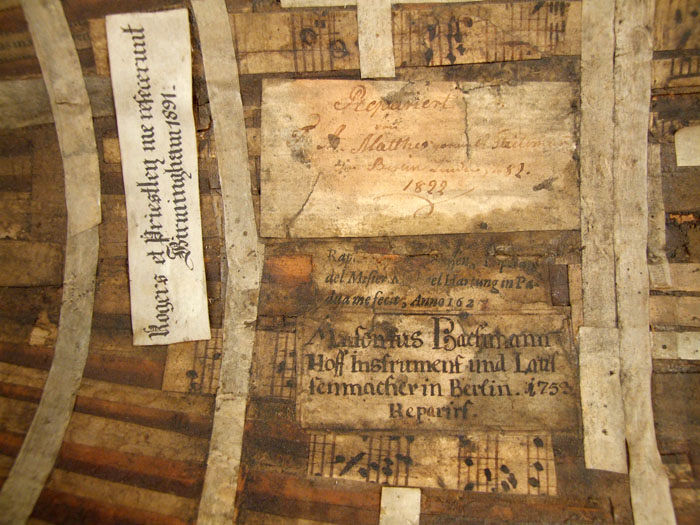 Rogers et Priestley me refecerunt
Birmingham 1891.
Repariert
von
A. Matthes
Berlin Linden
1822
Rap.
del Misier Hartung in Pa-
dua me fecit, Anno 162
Antonius Bachmann
Hoff Instrument und Laut
tenmacher in Berlin. 1753
Reparirt.